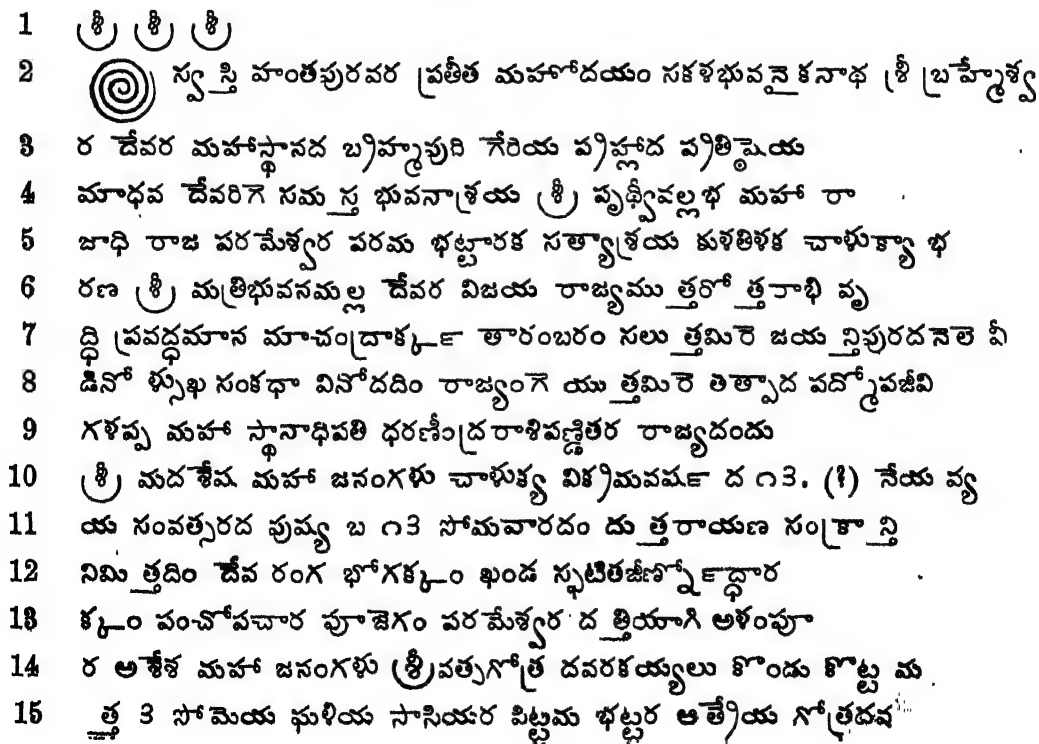 1 శ్రీ శ్రీ శ్రీ
2 స్వస్తి హంతపురవర ప్రతీత మహోదయం సకళభువనైకనాథ శ్రీ బ్రహ్మేశ్వ
3 ర దేవర మహాస్థానద బ్రిహ్మపురి గేరియ ప్రిహ్లాద ప్రితిష్ఠెయ
4 మాధవ దేవరిగె సమస్త భువనాశ్రయ శ్రీ పృథ్వీవల్లభ మహా రా
5 జాధి రాజ పరమేశ్వర పరమ భట్టారక సత్యాశ్రయ కుళతిళక చాళుక్యా భ
6 రణ శ్రీ మత్రిభువనమల్ల దేవర విజయ రాజ్యముత్తరోత్తరాభి వృ
7 ద్ధి ప్రవర్ద్ధమాన మాచంద్రార్క్క తారంబరం సలుత్తమిరె జయన్తిపురద నెలె వీ
8 డినోళ్సుఖ సంకధా వినోదదిం రాజ్యంగెయుత్తమిరె తత్పాద పద్మోపజీవి
9 గళప్ప మహా స్థానాధిపతి ధరణీంద్రరాశిపణ్డితర రాజ్యదందు
10 శ్రీ మదశేష మహా జనంగళు చాళుక్య విక్రిమవర్ష ద ౧3. (!) నేయ వ్య
11 య సంవత్సరద పుష్య బ ౧3 సోమవారదం దుత్తరాయణ సంక్రాన్తి
12 నిమిత్తదిం దేవ రంగ భోగక్కం ఖండ స్ఫటితజీర్ణ్నోద్ధార
13 క్కం పంచోపచార పూజెగం పరమేశ్వర దత్తియాగి అళంపూ
14 ర అశేశ మహా జనంగళు శ్రీవత్సగోత్ర దవరకయ్యలు కొండు కొట్ట మ
15 త్త 3 సోమెయ ఘళియ సాసియర విట్టమ భట్టర ఆత్రేయ గోత్రదవ